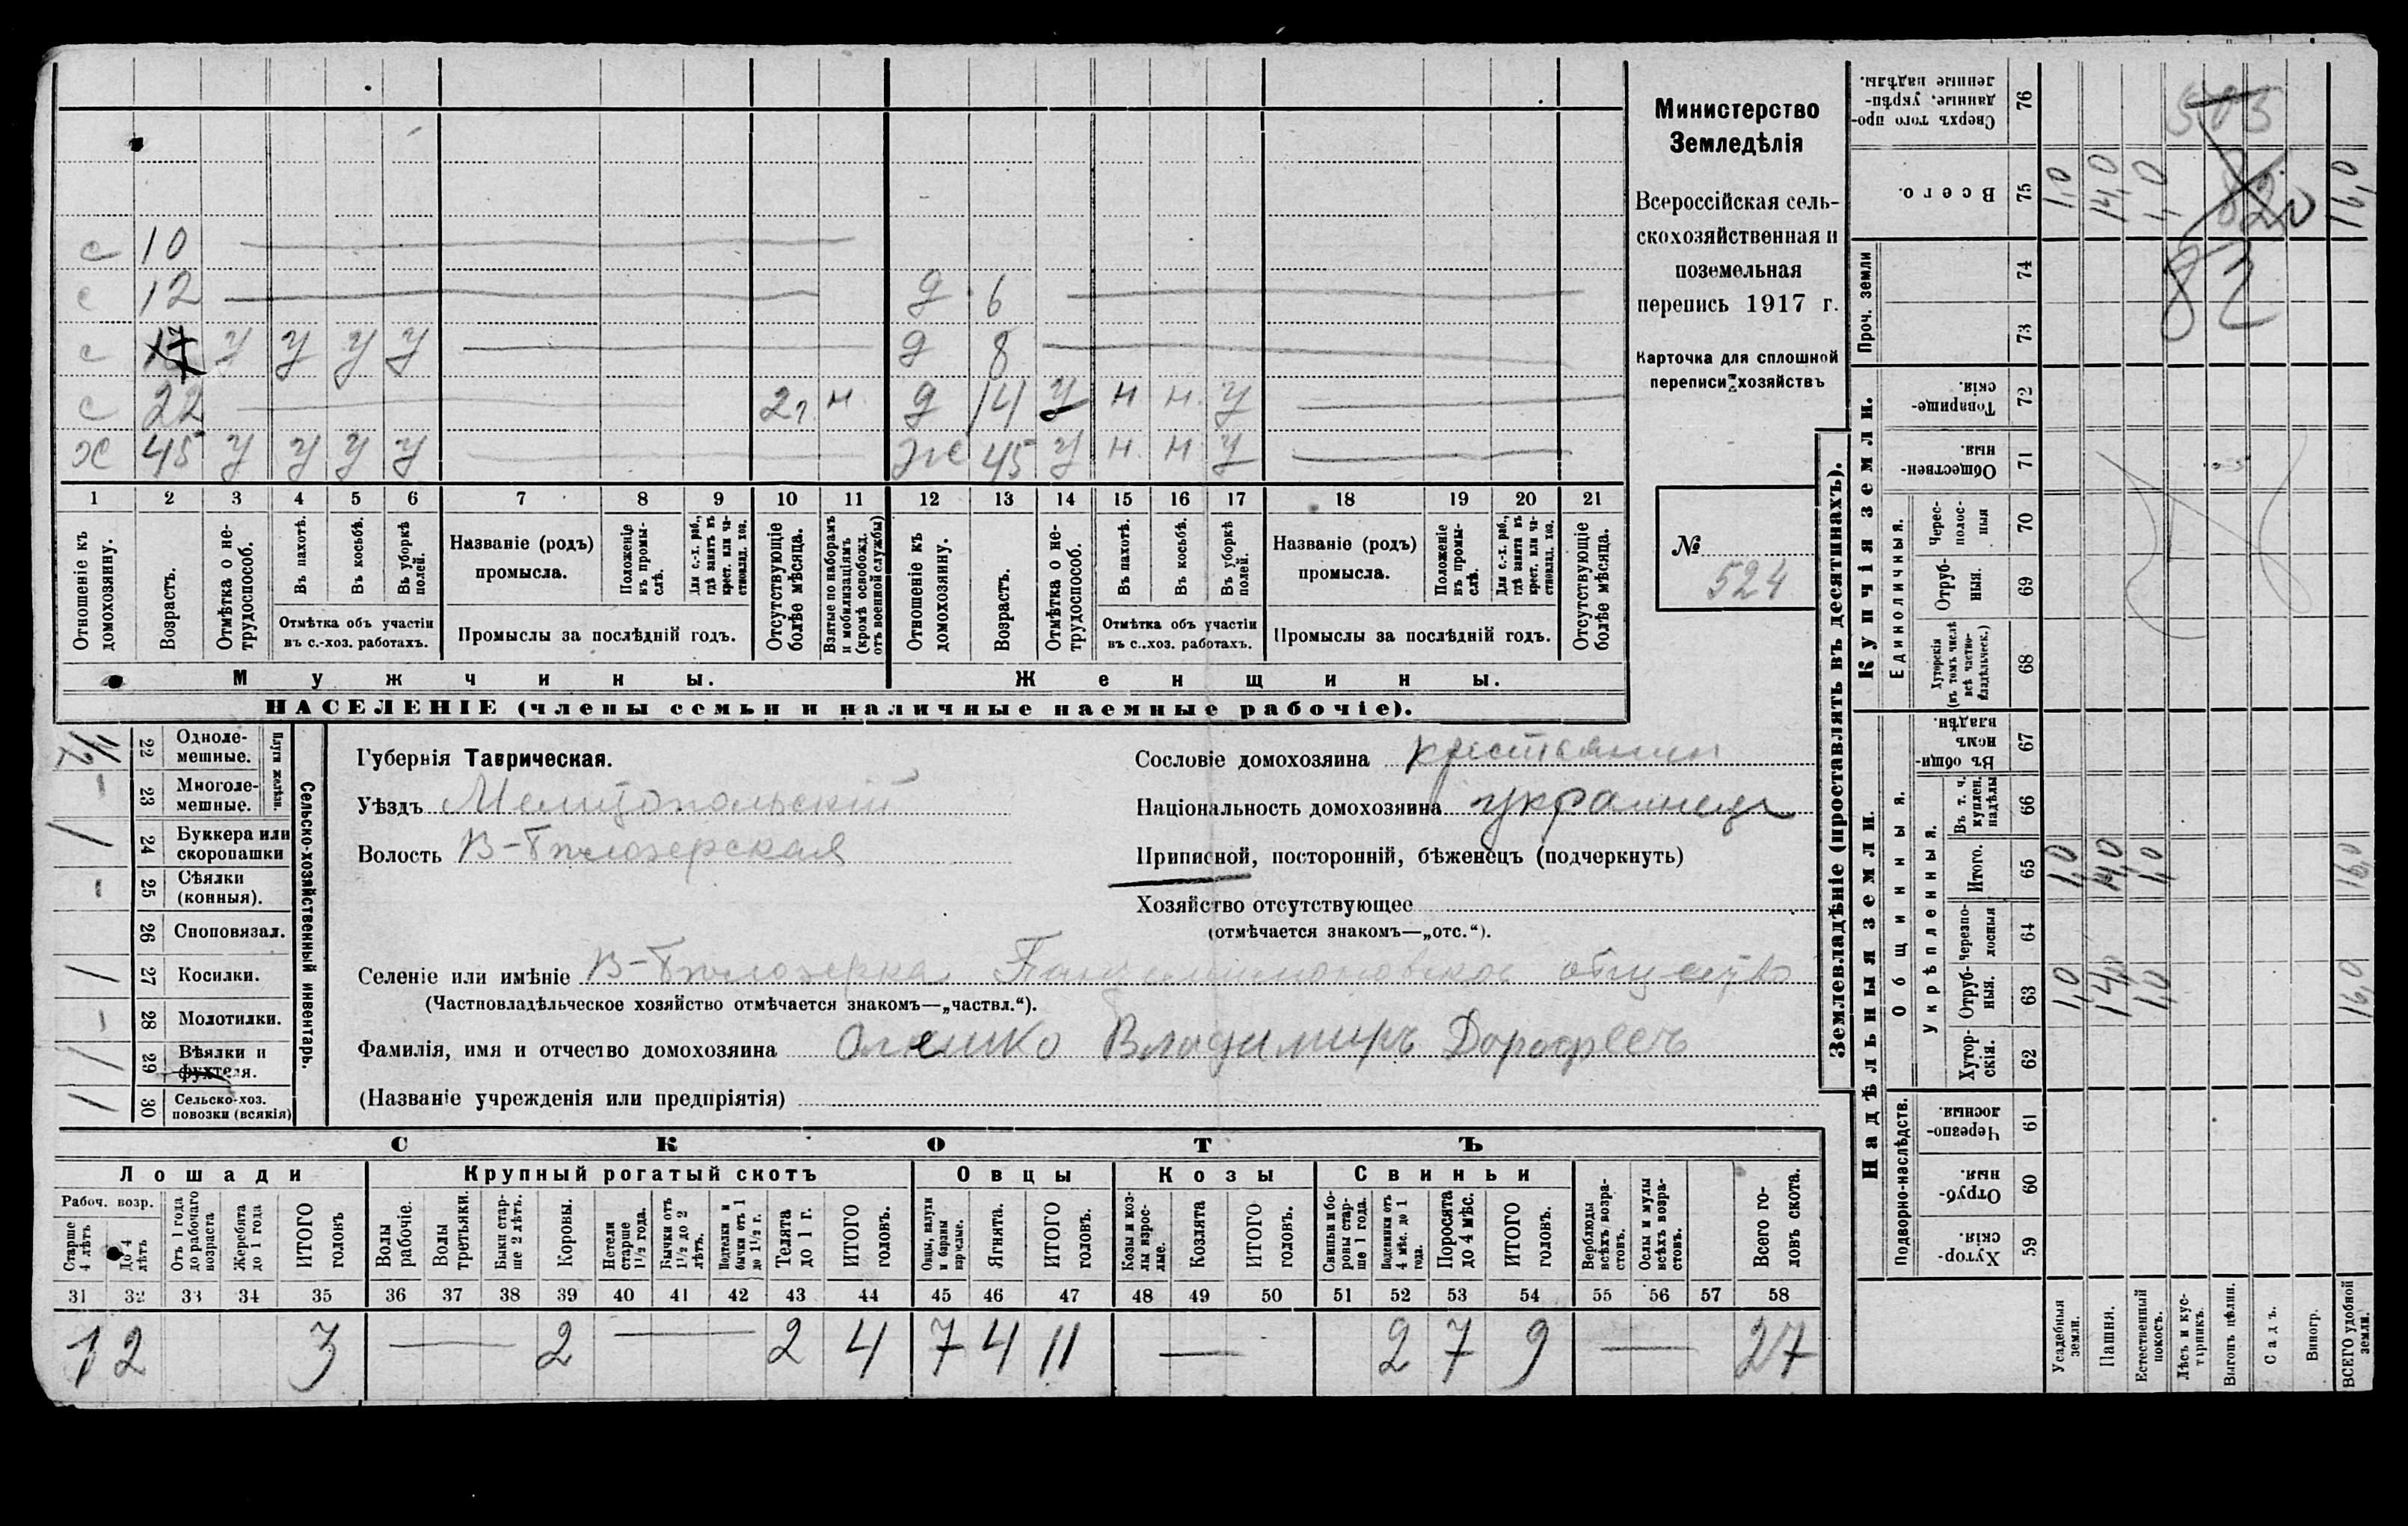 Министерство
Земледѣлія
Всероссійская сель-
скохозяйственная и
поземельная
перепись 1917 г.
Карточка для сплошной
переписи хозяйствъ
№ 524
с 10
с 12 д 6
с 17 У У У У д 8
с 22 н д 14 У н н У
х 45 У У У У же 45 У н н У
1 2 3 4 5 6 7 8 9 10 11 12 13 14 15 16 17 18 19 20 21
Отношеніе къ домохозяину.
Возрастъ.
Отмѣтка о не-трудоспособ.
Въ пахотѣ.
Въ косьбѣ.
Въ уборкѣ полей.
Отмѣтка объ участіи въ с.-хоз. работахъ.
Названіе (родъ) промысла.
Положеніе въ промы-слѣ.
Для с.-х. раб., гдѣ занятъ въ крест. или ча-стновлад. хоз.
Промыслы за послѣдній годъ.
Отсутствующіе болѣе мѣсяца.
Взятые по наборамъ и мобилизаціямъ (кромѣ освобожд. отъ военной службы)
Отношеніе къ домохозяину.
Возрастъ.
Отмѣтка о не-трудоспособ.
Въ пахотѣ.
Въ косьбѣ.
Въ уборкѣ полей.
Отмѣтка объ участіи въ с..хоз. работахъ.
Названіе (родъ) промысла.
Положеніе въ промы-слѣ.
Для с.-х. раб., гдѣ занята въ крест. или ча-стновлад. хоз.
Промыслы за послѣдній годъ.
Отсутствующіе болѣе мѣсяца.
Мужчины. Женщины.
НАСЕЛЕНІЕ (члены семьи и наличные наемные рабочіе).
22 Одноле-мешные.
- 23 Многоле-мешные.
Плуги желѣзн.
/ 24 Буккера или скоропашки
- 25 Сѣялки (конныя).
26 Сноповязал.
/ 27 Косилки.
- 28 Молотилки.
/ 29 Вѣялки и фухтеля.
/ 30 Сельско-хоз. повозки (всякія)
Сельско-хозяйственный инвентарь.
Губернія Таврическая.
Уѣздъ Мелитопольскій
Волость В-Бѣлозерская
Сословіе домохозяина крестьянин
Національность домохозяина украинец
Приписной, посторонній, бѣженецъ (подчеркнуть)
Хозяйство отсутствующее
(отмѣчается знакомъ—„отс.“).
Селеніе или имѣніе В-Бѣлозерка общество
(Частновладѣльческое хозяйство отмѣчается знакомъ—„частвл.“).
Фамилія, имя и отчество домохозяина Олешко Владимиръ Дорофеевъ
(Названіе учрежденія или предпріятія)
СКОТЪ
Лошади Крупный рогатый скотъ Овцы Козы Свиньи
Рабоч. возр.
Старше 4 лѣтъ
До 4 лѣтъ
Отъ 1 года до рабочаго возраста
Жеребята до 1 года
ИТОГО головъ
Волы рабочіе.
Волы третьяки.
Быки стар-ше 2 лѣтъ.
Коровы.
Нетели старше 1½ года.
Бычки отъ 1½ до 2 лѣтъ.
Подтелки и бычки отъ 1 до 1½ г.
Телята до 1 г.
ИТОГО головъ.
Овцы, валухи и бараны взрослые.
Ягнята.
ИТОГО головъ.
Козы и коз-лы взрос-лые.
Козлята
ИТОГО головъ.
Свиньи и бо-ровы стар-ше 1 года.
Подсвинки отъ 4 мѣс. до 1 года.
Поросята до 4 мѣс.
ИТОГО головъ.
Верблюды всѣхъ возра-стовъ.
Ослы и мулы всѣхъ возра-стовъ.
Всего го-ловъ скота.
31 32 33 34 35 36 37 38 39 40 41 42 43 44 45 46 47 48 49 50 51 52 53 54 55 56 57 58
1 2 3 — 2 — 2 4 7 4 11 — 2 7 9 — 27
Землевладѣніе (проставлять въ десятинахъ).
Надѣльныя земли. Купчія земли. Проч. земли
Подворно-наслѣдств.
Общинныя.
Укрѣпленныя.
Единоличныя.
Хутор-скія. 59
Отруб-ныя. 60
Черезпо-лосныя. 61
Хутор-скія. 62
Отруб-ныя. 63 1,0 14,0 1,0 16,0
Черезпо-лосныя 64
Итого. 65 1,0 14,0 1,0 16,0
Въ т. ч. куплен. надѣлы 66
Въ общи-номъ владѣн. 67
Хуторскія (въ томъ числѣ всѣ частно-владѣльческ.) 68
Отруб-ныя. 69
Черес-полос-ныя 70
Обществен-ныя 71
Товарище-скія. 72
73
74
Всего. 75 1,0 14,0 1,0 16,0
Сверхъ того про-данные, укрѣп-ленные надѣлы. 76
503
82
Усадебныя земли.
Пашня.
Естественный покосъ.
Лѣсъ и кус-тарникъ.
Выгонъ цѣлин.
Садъ.
Виногр.
ВСЕГО удобной земли.